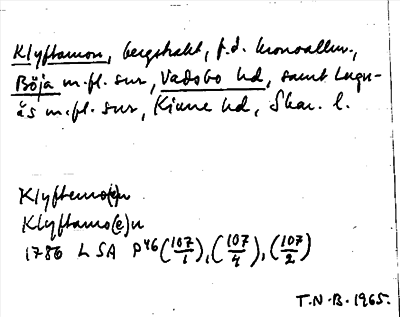 Klyftamon, bergstrakt, f.d. kronoallm.,
Böja m.fl. snr, Vadsbo hd, samt Lugn-
ås m.fl. snr, Kinne hd, Skar. l.
Klyftemo(e)n
Klyftamo(e)n
1786 LSA P46 (107/1), (107/4), (107/2)
T.N.B. 1965.